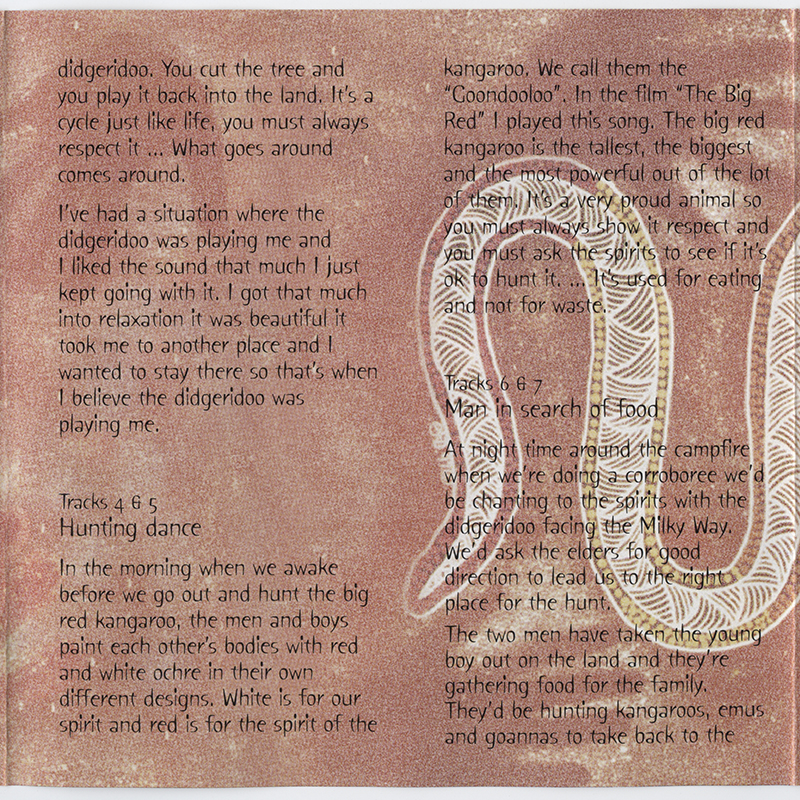 didgeridoo. You cut the tree and
you play it back into the land. It's a
cycle just like life, you must always
respect it ... What goes around
comes around.
I've had a situation where the
didgeridoo was playing me and
I liked the sound that much I just
kept going with it. I got that much
into relaxation it was beautiful it
took me to another place and I
wanted to stay there so that's when
I believe the didgeridoo was
playing me.
Tracks 4 & 5
Hunting dance
In the morning when we awake
before we go out and hunt the big
red kangaroo, the men and boys
paint each other's bodies with red
and white ochre in their own
different designs. White is for our
spirit and red is for the spirit of the
kangaroo. We call them the
“Goondooloo”. In the film “The Big
Red” I played this song. The big red
kangaroo is the tallest, the biggest
and the most powerful out of the lot
of them. It's a very proud animal so
you must always show it respect and
you must ask the spirits to see if it's
ok to hunt it. ... It's used for eating
and not for waste.
Tracks 6 & 7
Man in search of food
At night time around the campfire
when we're doing a corroboree we'd
be chanting to the spirits with the
didgeridoo facing the Milky Way.
We'd ask the elders for good
direction to lead us to the right
place for the hunt.
The two men have taken the young
boy out on the land and they're
gathering food for the family.
They'd be hunting kangaroos, emus
and goannas to take back to the